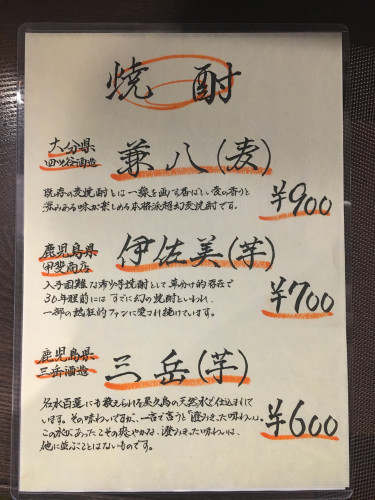 焼酎
大分県
四ツ谷酒造
兼八(麦)
既存の麦焼酎とは一線を画す香ばしい麦の香りと
深みある味が楽しめる本格派超幻麦焼酎です。
¥900
鹿児島県
甲斐商店
伊佐美(芋)
入手困難な希少芋焼酎として草分け的存在で
30年程前にはすでに幻の焼酎といわれ、
一部の熱狂的ファンに愛され続けています。
¥700
鹿児島県
三岳酒造
三岳(芋)
名水百選にも数えられる屋久島の天然水で仕込まれて
います。その味わいですが、一言で言うと「澄みきった味わい」。
この水があってこその爽やかな、澄みきった味わいは、
他に並ぶことはないものです。
¥600